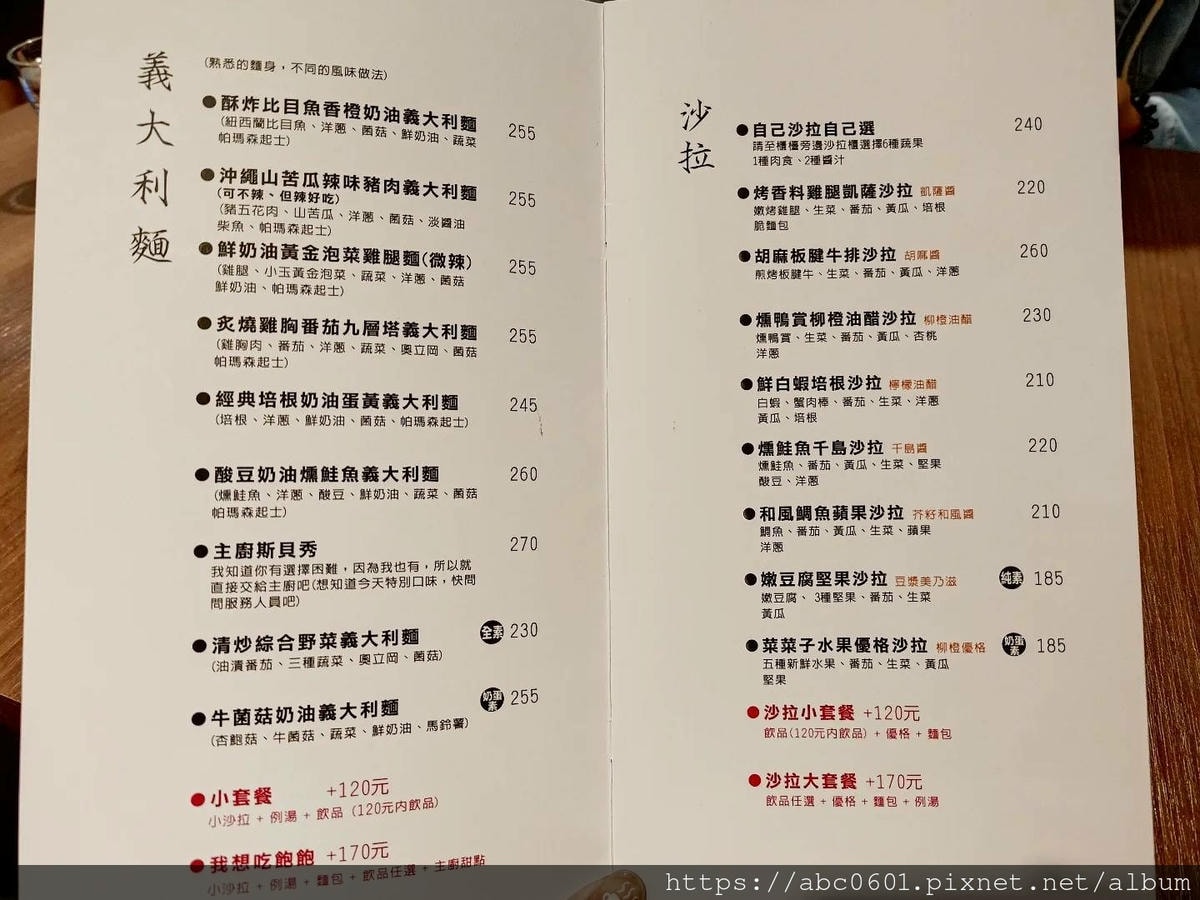 義大利麵
(熟悉的麵身，不同的風味做法)
●酥炸比目魚香橙奶油義大利麵 255
(紐西蘭比目魚、洋蔥、菌菇、鮮奶油、蔬菜
帕瑪森起士)
●沖繩山苦瓜辣味豬肉義大利麵 255
(可不辣、但辣好吃)
(豬五花肉、山苦瓜、洋蔥、菌菇、淡醬油
柴魚、帕瑪森起士)
●鮮奶油黃金泡菜雞腿麵(微辣) 255
(雞腿、小玉黃金泡菜、蔬菜、洋蔥、菌菇
鮮奶油、帕瑪森起士)
●炙燒雞胸番茄九層塔義大利麵 255
(雞胸肉、番茄、洋蔥、蔬菜、奧立岡、菌菇
帕瑪森起士)
●經典培根奶油蛋黃義大利麵 245
(培根、洋蔥、鮮奶油、菌菇、帕瑪森起士)
●酸豆奶油燻鮭魚義大利麵 260
(燻鮭魚、洋蔥、酸豆、鮮奶油、蔬菜、菌菇
帕瑪森起士)
●主廚斯貝秀 270
我知道你有選擇困難，因為我也有，所以就
直接交給主廚吧(想知道今天特別口味，快問
問服務人員吧)
●清炒綜合野菜義大利麵 全素 230
(油漬番茄、三種蔬菜、奧立岡、菌菇)
●牛菌菇奶油義大利麵 奶蛋素 255
(杏鮑菇、牛菌菇、蔬菜、鮮奶油、馬鈴薯)
●小套餐 +120元
小沙拉 + 例湯 + 飲品 (120元內飲品)
●我想吃飽飽 +170元
小沙拉 + 例湯 + 麵包 + 飲品任選 + 主廚甜點
沙拉
●自己沙拉自己選 240
請至櫃檯旁邊沙拉櫃選擇6種蔬果
1種肉食、2種醬汁
●烤香料雞腿凱薩沙拉 凱薩醬 220
嫩烤雞腿、生菜、番茄、黃瓜、培根
脆麵包
●胡麻板腱牛排沙拉 胡麻醬 260
煎烤板腱牛、生菜、番茄、黃瓜、洋蔥
●燻鴨賞柳橙油醋沙拉 柳橙油醋 230
燻鴨賞、生菜、番茄、黃瓜、杏桃
洋蔥
●鮮白蝦培根沙拉 檸檬油醋 210
白蝦、蟹肉棒、番茄、生菜、洋蔥
黃瓜、培根
●燻鮭魚千島沙拉 千島醬 220
燻鮭魚、番茄、黃瓜、生菜、堅果
酸豆、洋蔥
●和風鯛魚蘋果沙拉 芥籽和風醬 210
鯛魚、番茄、黃瓜、生菜、蘋果
洋蔥
●嫩豆腐堅果沙拉 豆漿美乃滋 純素 185
嫩豆腐、 3種堅果、番茄、生菜
黃瓜
●菜菜子水果優格沙拉 柳橙優格 奶蛋素 185
五種新鮮水果、番茄、生菜、黃瓜
堅果
●沙拉小套餐 +120元
飲品(120元內飲品) + 優格 + 麵包
●沙拉大套餐 +170元
飲品任選 + 優格 + 麵包 + 例湯
https://abc0601.pixnet.net/album